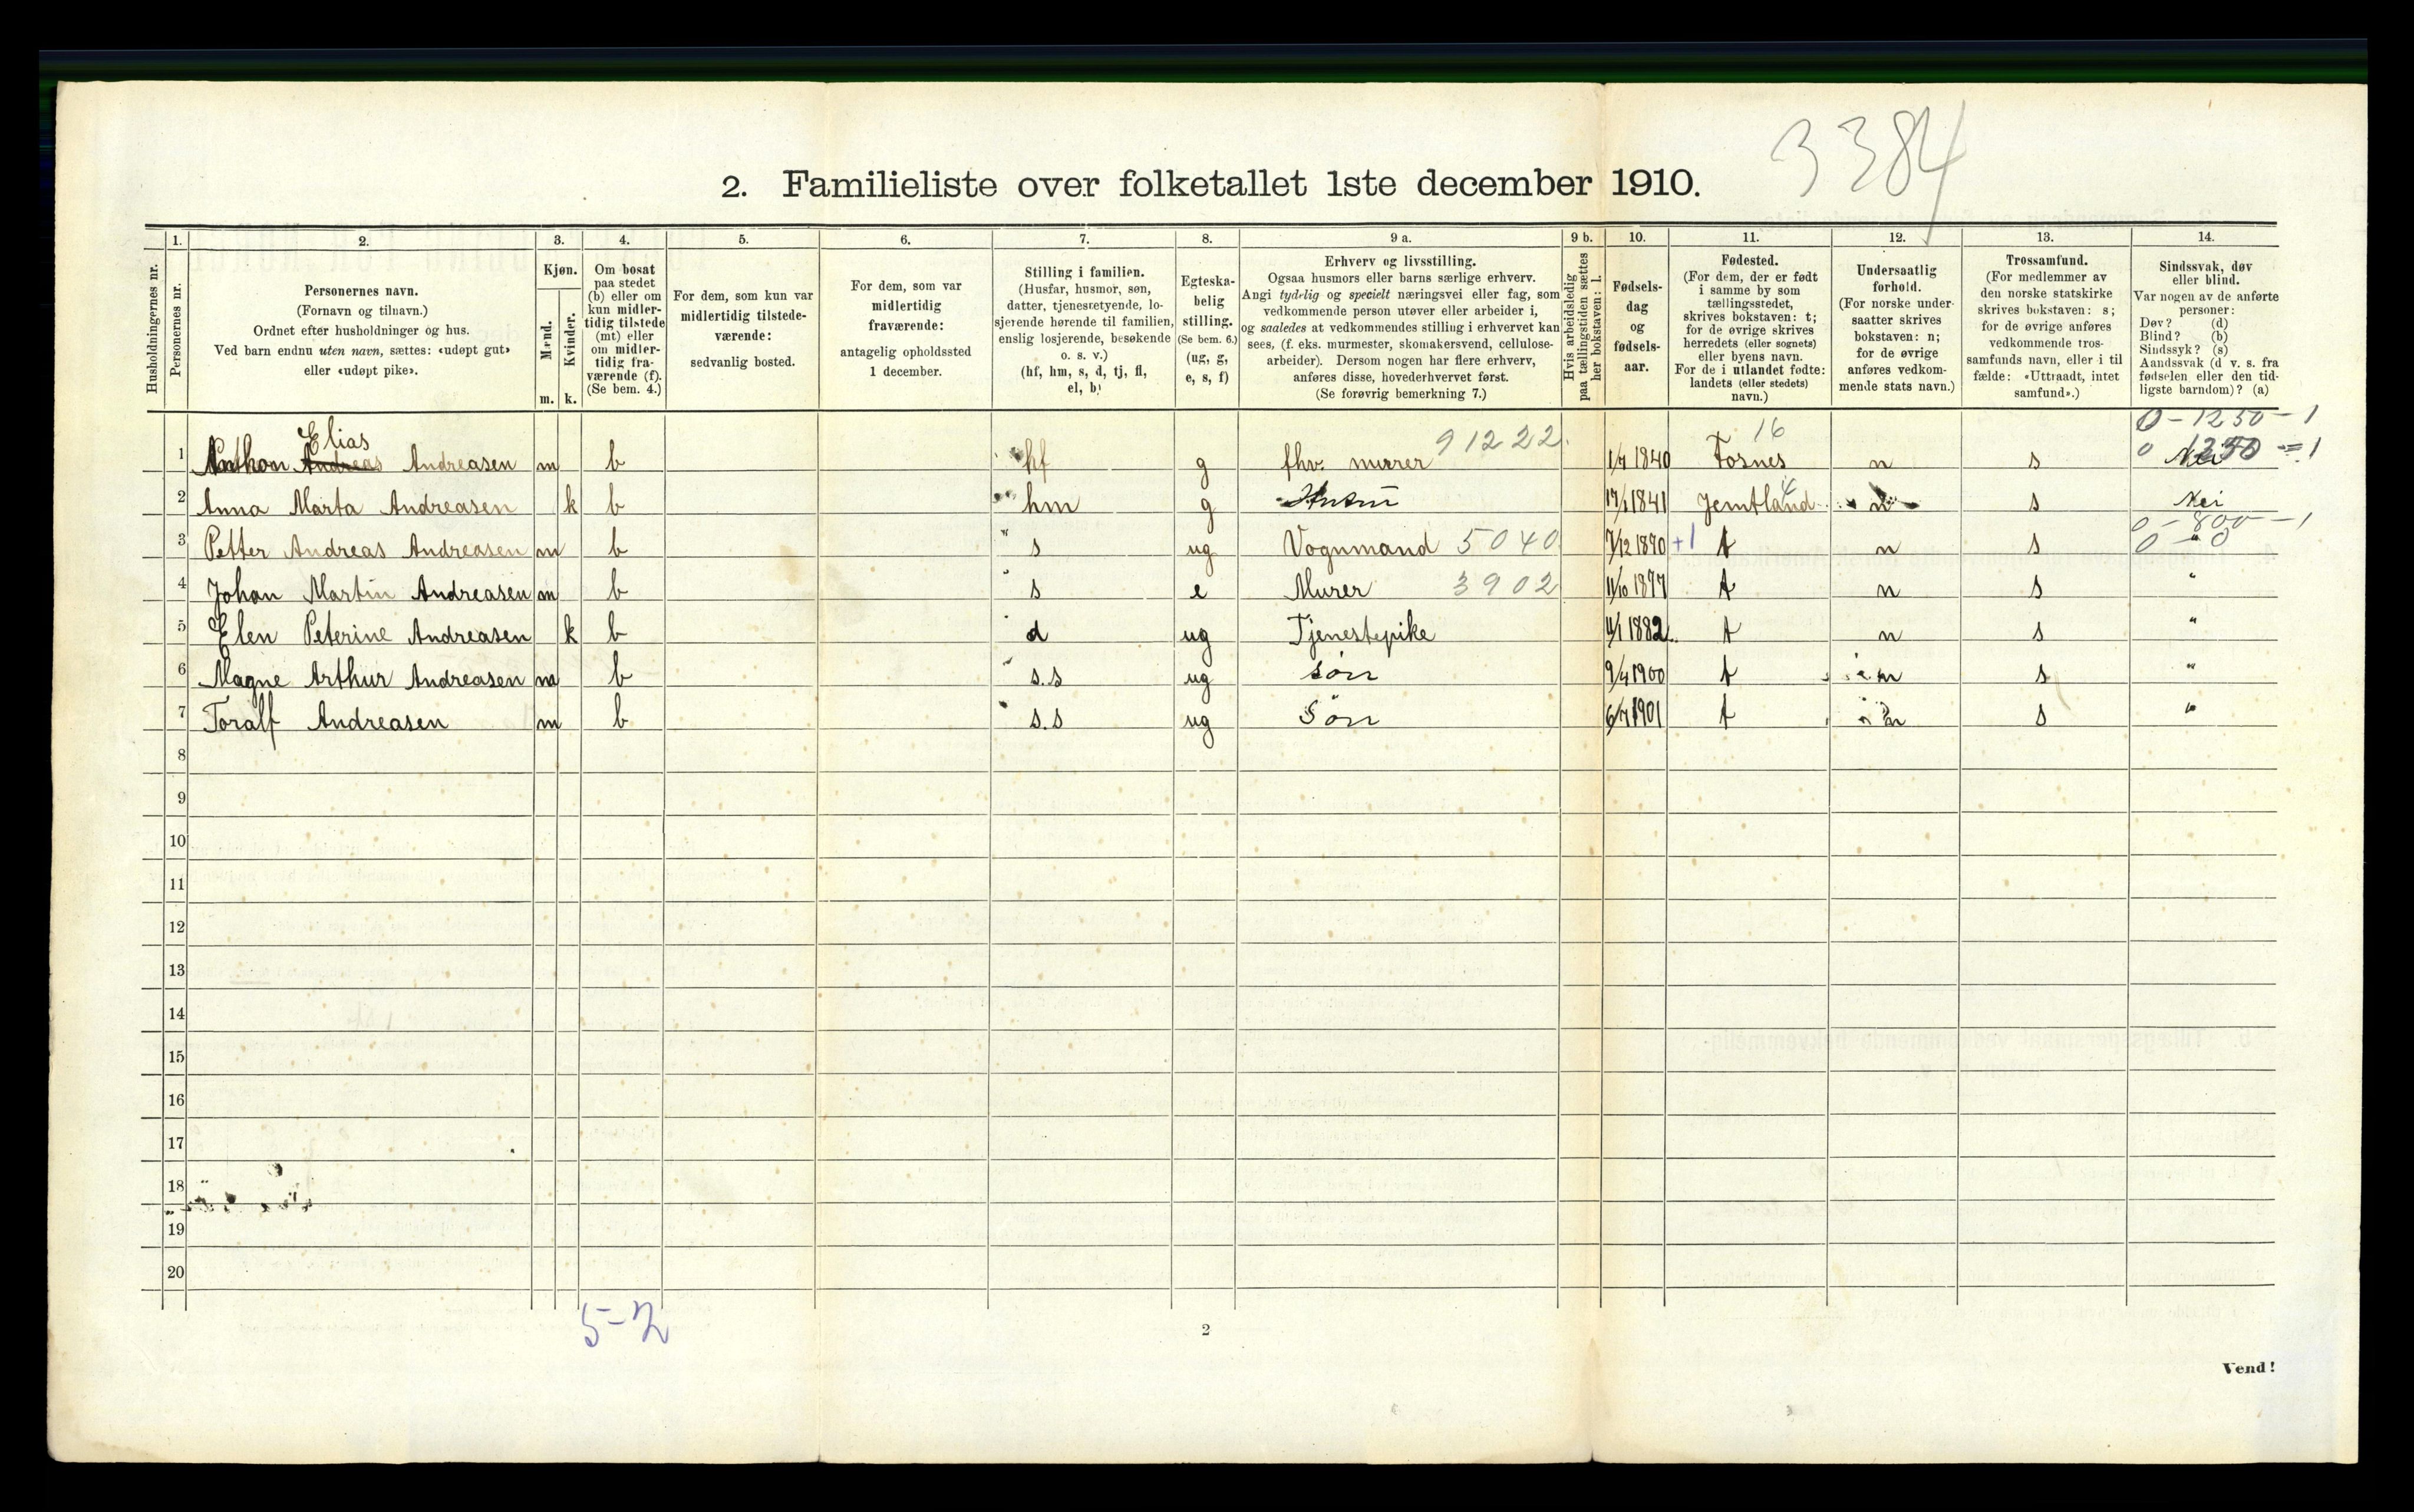 3384
2. Familieliste over folketallet 1ste december 1910.
1. 2. 3. 4. 5. 6. 7. 8. 9 a. 9 b. 10. 11. 12. 13. 14.
Husholdningernes nr.
Personernes nr.
Personernes navn.
(Fornavn og tilnavn.)
Ordnet efter husholdninger og hus.
Ved barn endnu uten navn, sættes: «udøpt gut»
eller «udøpt pike».
Kjøn.
Mænd.
Kvinder.
m. k.
Om bosat
paa stedet
(b) eller om
kun midler-
tidig tilstede
(mt) eller
om midler-
tidig fra-
værende (f).
(Se bem. 4.)
For dem, som kun var
midlertidig tilstede-
værende:
sedvanlig bosted.
For dem, som var
midlertidig
fraværende:
antagelig opholdssted
1 december.
Stilling i familien.
(Husfar, husmor, søn,
datter, tjenestetyende, lo-
sjerende hørende til familien,
enslig losjerende, besøkende
o. s. v.)
(hf, hm, s, d, tj, fl,
el, b)
Egteska-
belig
stilling.
(Se bem. 6.)
(ug, g,
e, s, f)
Erhverv og livsstilling.
Ogsaa husmors eller barns særlige erhverv.
Angi tydelig og specielt næringsvei eller fag, som
vedkommende person utøver eller arbeider i,
og saaledes at vedkommendes stilling i erhvervet kan
sees, (f. eks. murmester, skomakersvend, cellulose-
arbeider). Dersom nogen har flere erhverv,
anføres disse, hovederhvervet først.
(Se forøvrig bemerkning 7.)
Hvis arbeidsledig
paa tællingstiden sættes
her bokstaven: l.
Fødsels-
dag
og
fødsels-
aar.
Fødested.
(For dem, der er født
i samme by som
tællingsstedet,
skrives bokstaven: t;
for de øvrige skrives
herredets (eller sognets)
eller byens navn.
For de i utlandet fødte:
landets (eller stedets)
navn.)
Undersaatlig
forhold.
(For norske under-
saatter skrives
bokstaven: n;
for de øvrige
anføres vedkom-
mende stats navn.)
Trossamfund.
(For medlemmer av
den norske statskirke
skrives bokstaven: s;
for de øvrige anføres
vedkommende tros-
samfunds navn, eller i til
fælde: «Uttraadt, intet
samfund».)
Sindssvak, døv
eller blind.
Var nogen av de anførte
personer:
Døv? (d)
Blind? (b)
Sindssyk? (s)
Aandssvak (d v. s. fra
fødselen eller den tid-
ligste barndom)? (a)
0 - 1250 - 1
Elias 91222 16
1 Anthon Andreas Andreasen m b hf g fhv. murer 1/7 1840 Fosnes n s Nei 0 1250 = 1
2 Anna Marta Andreasen k b hm g 17/1 1841 Jemtland 4 n s Nei
0 - 800 - 1
3 Petter Andreas Andreasen m b s ug Vognmand 5040 7/12 1870 +1 t n s " 0 - 0
4 Johan Martin Andreasen m b s e Murer 3902 11/10 1877 t n s "
5 Elen Peterine Andreasen k b d ug Tjenestepike 4/1 1882 t n s "
6 Magne Arthur Andreasen m b s.s ug søn 9/4 1900 t n s "
7 Toralf Andreasen m b s.s ug Søn 6/7 1901 t n s "
8
9
10
11
12
13
14
15
16
17
18
19
20
5-2
2
Vend!